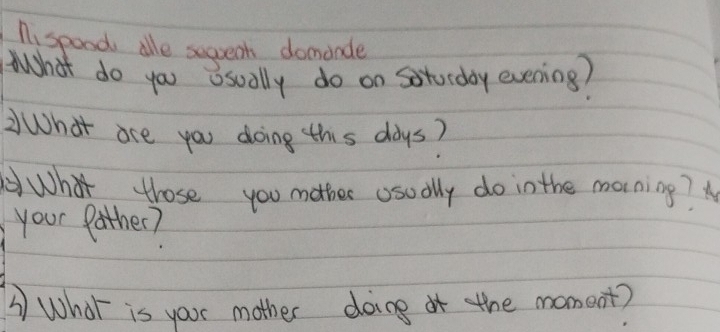 Rispondi alle seguenti domande
1) What do you usually do on Saturday evening?
2) What are you doing this days?
3) What those you mother usually do in the morning?
your father?
4) What is your mother doing at the moment?